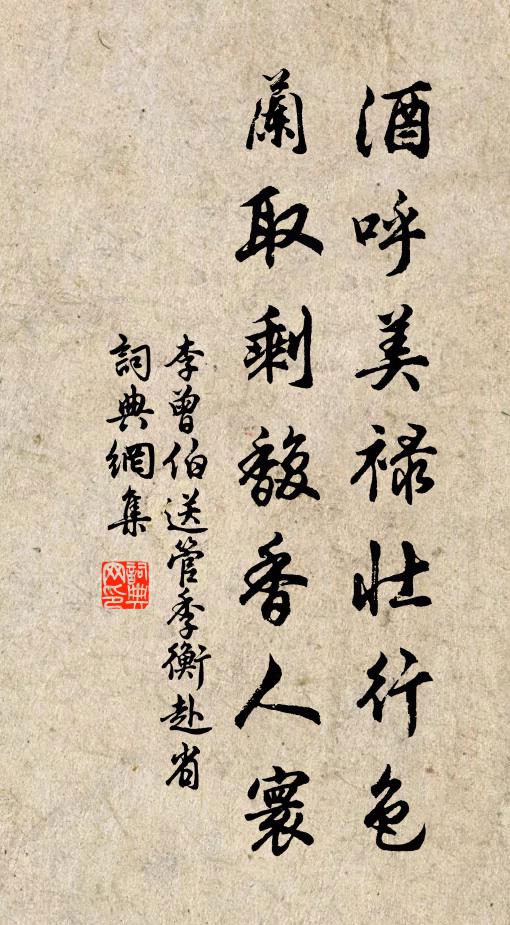 酒呼美禄壮行色
蘭取剩馥香人寰
李曾伯送管季衡赴省
詞典網集
詞典网印